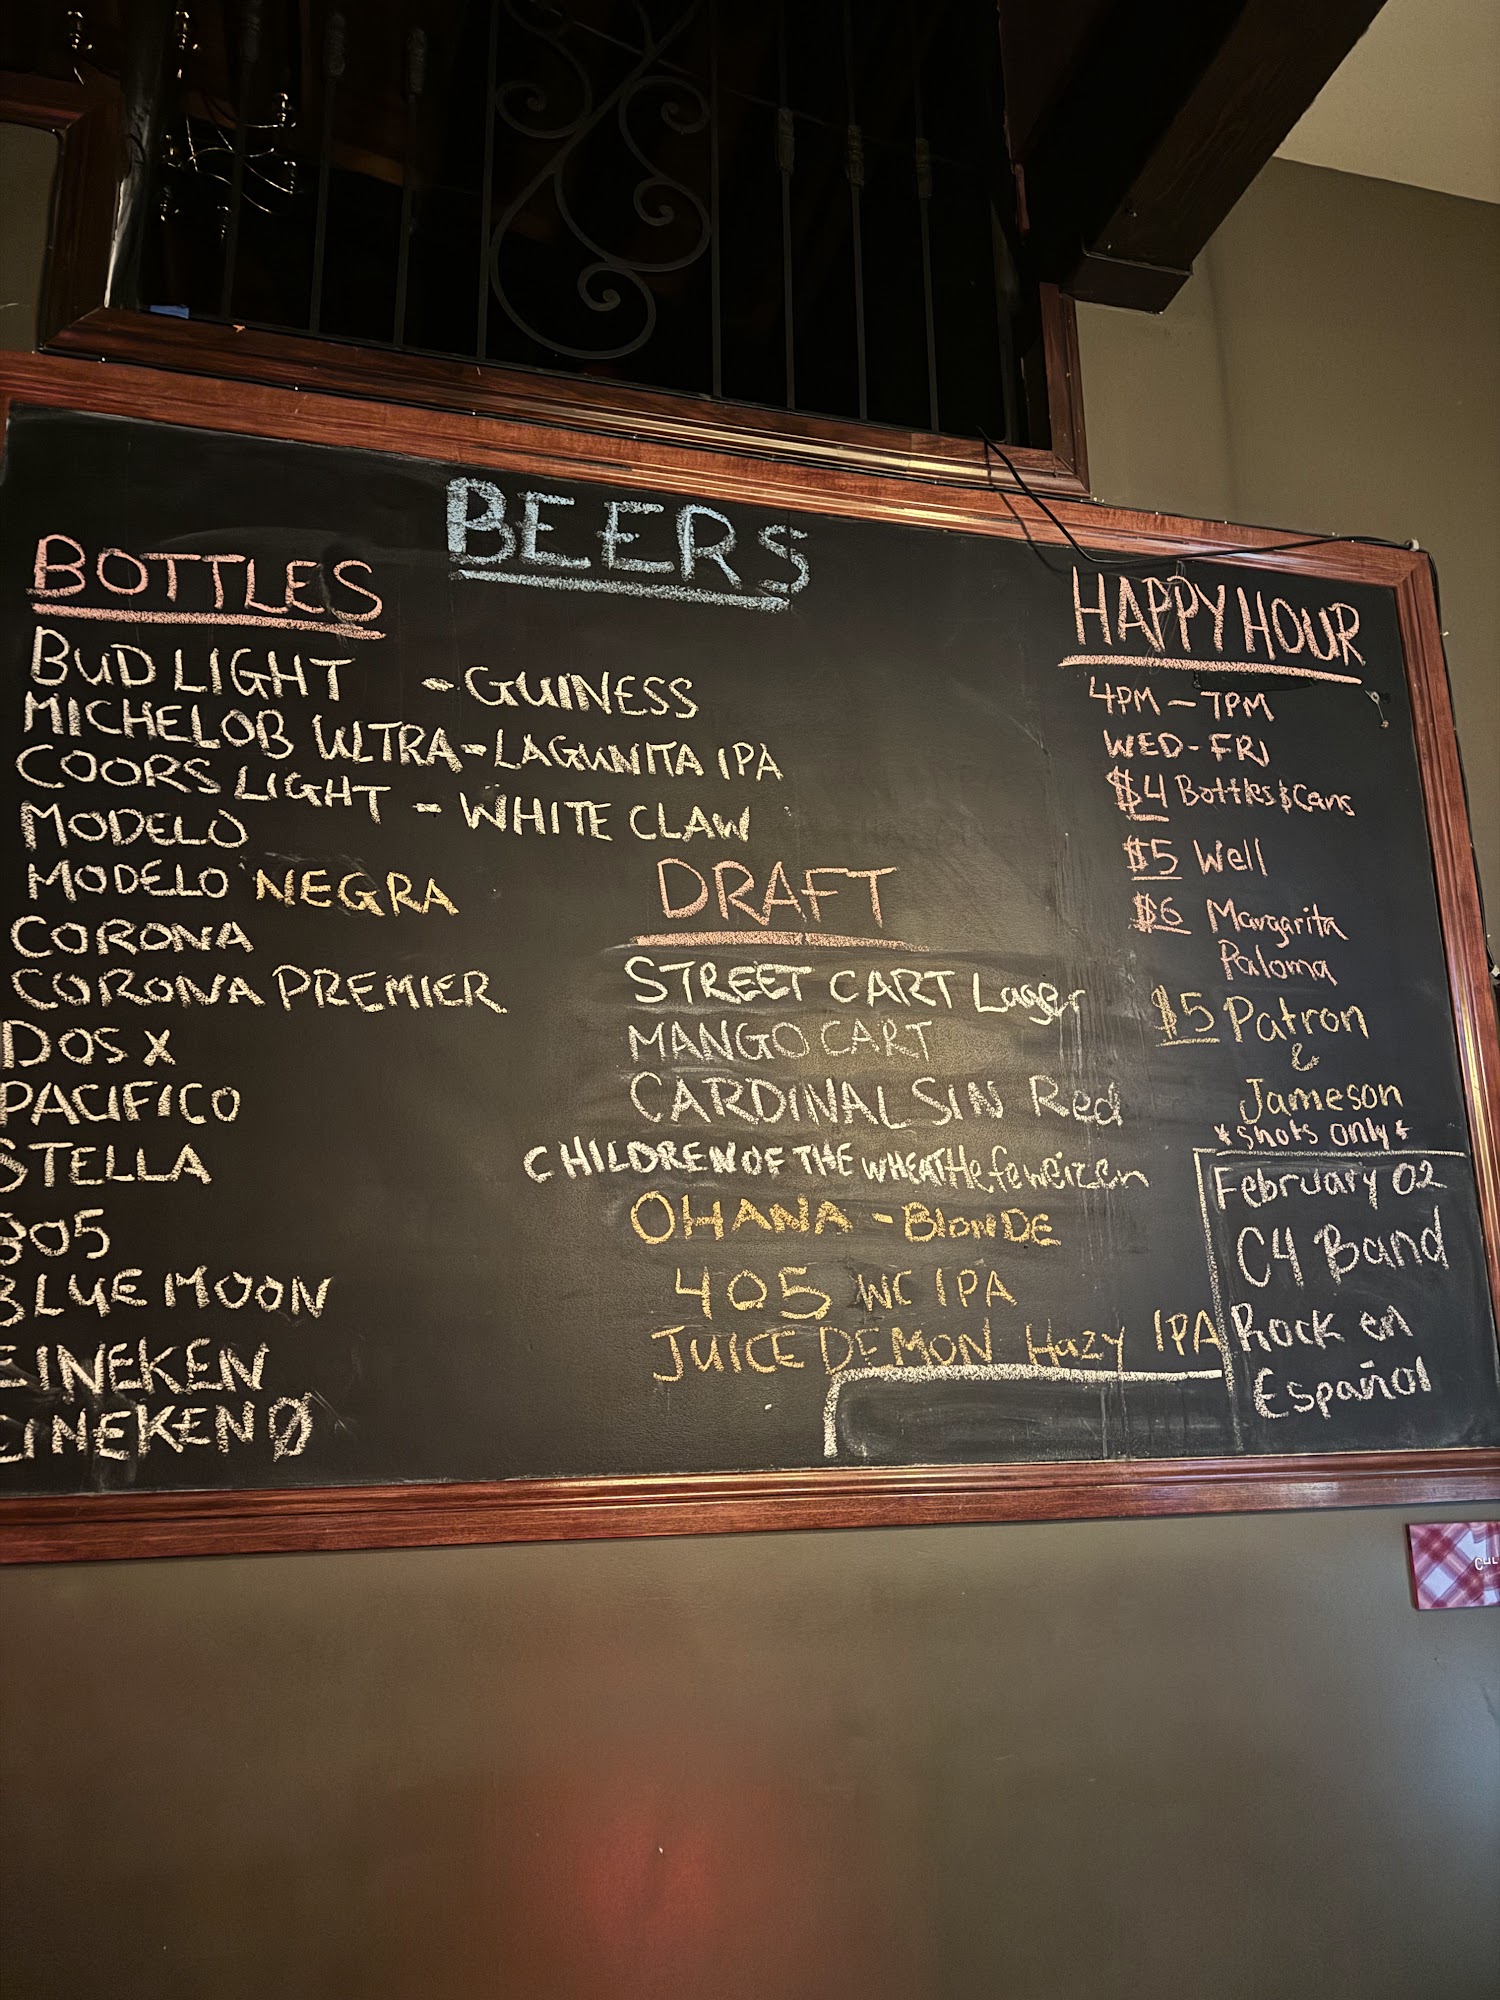 BEERS
BOTTLES
BUD LIGHT - GUINESS
MICHELOB ULTRA - LAGUNITA IPA
COORS LIGHT - WHITE CLAW
MODELO
MODELO NEGRA
CORONA
CORONA PREMIER
DOS X
PACIFICO
STELLA
805
BLUE MOON
EINEKEN
EINEKEN Ø
DRAFT
STREET CART Lager
MANGO CART
CARDINAL SIN Red
CHILDREN OF THE WHEAT Hefeweizen
OHANA - BLONDE
405 WC IPA
JUICE DEMON Hazy IPA
HAPPY HOUR
4PM - 7PM
WED - FRI
$4 Bottles & Cans
$5 Well
$6 Margarita
Paloma
$5 Patron
&
Jameson
*shots only*
February 02
C4 Band
Rock en
Español